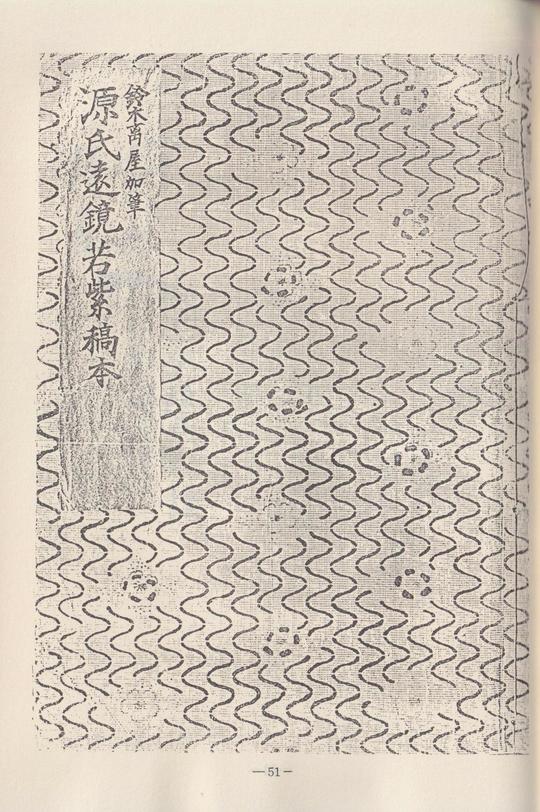 鈴木离屋加筆
源氏遠鏡若紫稿本
— 51 —